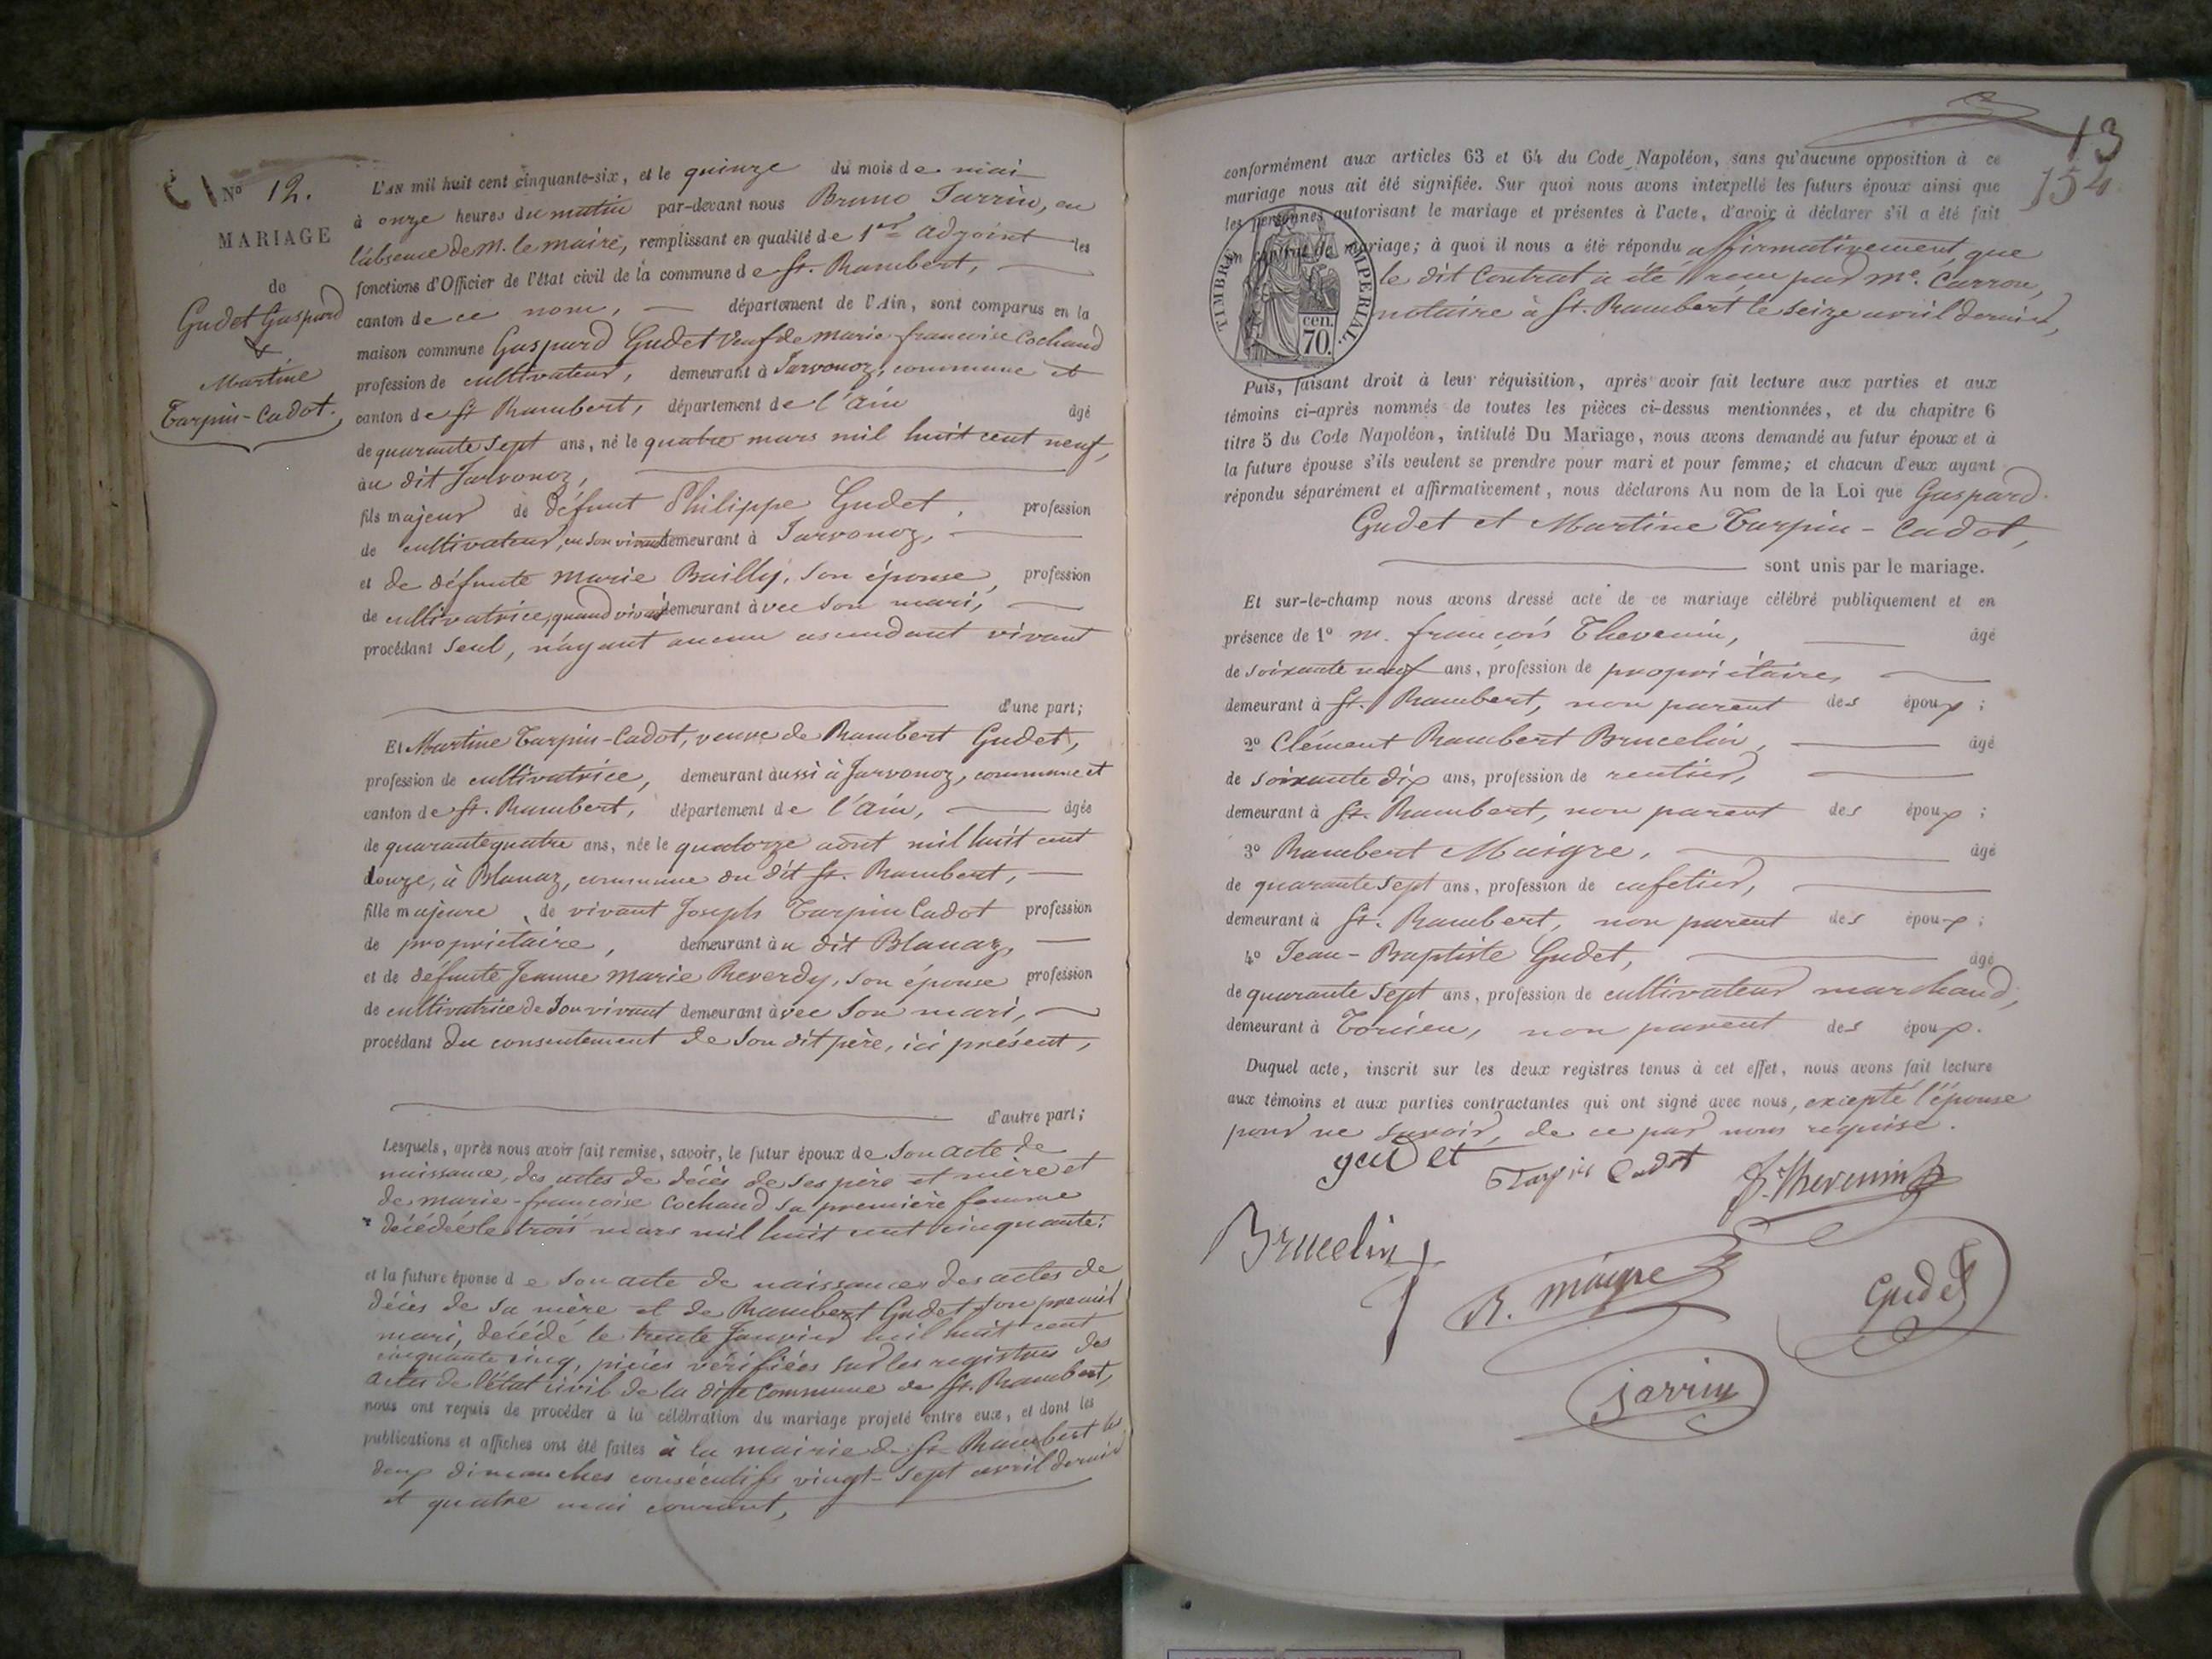 N° 12.
MARIAGE
de
Gudet Gaspard
&
Martine
Turpin-Cadot.
L'AN mil huit cent cinquante-six, et le quinze du mois de mai
à onze heures du matin par-devant nous Bruno Jarrin, en
l'absence de M. le maire, remplissant en qualité de 1er adjoint les
fonctions d'Officier de l'état civil de la commune de St. Rambert,
canton de ce nom, département de l'Ain, sont comparus en la
maison commune Gaspard Gudet veuf de marie-françoise Cochand
profession de cultivateur, demeurant à Jarvonoz, commune et
canton de St Rambert, département de l'ain âgé
de quarante sept ans, né le quatre mars mil huit cent neuf,
au dit Jarvonoz,
fils majeur de défunt Philippe Gudet, profession
de cultivateur, en son vivant demeurant à Jarvonoz,
et de défunte marie Bailly, son épouse, profession
de cultivatrice, quand vivait demeurant avec son mari,
procédant seul, n'ayant aucun ascendant vivant
d'une part;
Et Martine Turpin-Cadot, veuve de Rambert Gudet,
profession de cultivatrice, demeurant aussi à Jarvonoz, commune et
canton de St. Rambert, département de l'ain, âgée
de quarante quatre ans, née le quatorze août mil huit cent
douze, à Blanaz, commune du dit St. Rambert,
fille majeure de vivant Joseph Turpin Cadot profession
de propriétaire, demeurant au dit Blanaz,
et de défunte Jeanne Marie Reverdy, son épouse profession
de cultivatrice de son vivant demeurant avec son mari,
procédant du consentement de son dit père, ici présent,
d'autre part;
Lesquels, après nous avoir fait remise, savoir, le futur époux de son acte de
naissance, des actes de décès de ses père et mère et
de marie-françoise Cochand sa première femme
décédée le trois mars mil huit cent cinquante;
et la future épouse de son acte de naissance, des actes de
décès de sa mère et de Rambert Gudet son premier
mari, décédé le trente Janvier mil huit cent
cinquante cinq, pièces vérifiées sur les registres des
actes de l'état civil de la dite commune de St. Rambert,
nous ont requis de procéder à la célébration du mariage projeté entre eux, et dont les
publications et affiches ont été faites à la mairie de St Rambert les
deux dimanches consécutifs vingt-sept avril dernier
et quatre mai courant,
13
154
conformément aux articles 63 et 64 du Code Napoléon, sans qu'aucune opposition à ce
mariage nous ait été signifiée. Sur quoi nous avons interpellé les futurs époux ainsi que
les personnes autorisant le mariage et présentes à l'acte, d'avoir à déclarer s'il a été fait
un contrat de mariage; à quoi il nous a été répondu affirmativement, que
le dit Contrat a été reçu par Me. Carron,
notaire à St. Rambert le seize avril dernier,
TIMBRE IMPERIAL.
cen.
70.
Puis, faisant droit à leur réquisition, après avoir fait lecture aux parties et aux
témoins ci-après nommés de toutes les pièces ci-dessus mentionnées, et du chapitre 6
titre 5 du Code Napoléon, intitulé Du Mariage, nous avons demandé au futur époux et à
la future épouse s'ils veulent se prendre pour mari et pour femme; et chacun d'eux ayant
répondu séparément et affirmativement, nous déclarons Au nom de la Loi que Gaspard
Gudet et Martine Turpin-Cadot,
sont unis par le mariage.
Et sur-le-champ nous avons dressé acte de ce mariage célébré publiquement et en
présence de 1° m. françois Thevenin, âgé
de soixante neuf ans, profession de propriétaire,
demeurant à St. Rambert, non parent des époux;
2° Clément Rambert Brucelin, âgé
de soixante dix ans, profession de rentier,
demeurant à St. Rambert, non parent des époux;
3° Rambert Maigre, âgé
de quarante sept ans, profession de cafetier,
demeurant à St. Rambert, non parent des époux;
4° Jean-Baptiste Gudet, âgé
de quarante sept ans, profession de cultivateur marchand,
demeurant à Torcieu, non parent des époux.
Duquel acte, inscrit sur les deux registres tenus à cet effet, nous avons fait lecture
aux témoins et aux parties contractantes qui ont signé avec nous, excepté l'épouse
pour ne savoir, de ce par nous requise.
gudet Turpin Cadot f. Thevenin
Brucelin
R. maigre Gudet
jarrin